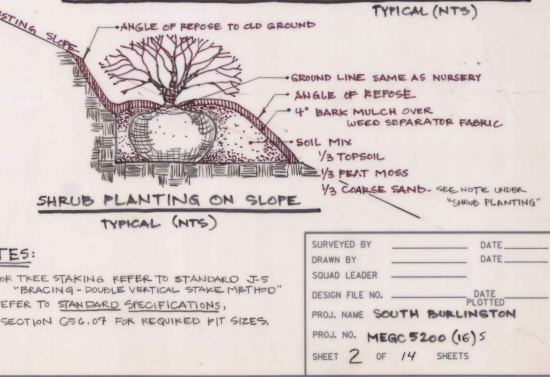 TYPICAL (NTS)
ANGLE OF REPOSE TO OLD GROUND
STING SLOPE
GROUND LINE SAME AS NURSERY
ANGLE OF REPOSE
4" BARK MULCH OVER
WEED SEPARATOR FABRIC
SOIL MIX
1/3 TOPSOIL
1/3 PEAT MOSS
1/3 COARSE SAND - SEE NOTE UNDER
"SHRUB PLANTING"
SHRUB PLANTING ON SLOPE
TYPICAL (NTS)
TES:
OR TREE STAKING REFER TO STANDARD J-5
"BRACING - DOUBLE VERTICAL STAKE METHOD"
EFER TO STANDARD SPECIFICATIONS,
SECTION 656.07 FOR REQUIRED PIT SIZES.
SURVEYED BY DATE
DRAWN BY DATE
SQUAD LEADER
DESIGN FILE NO. DATE PLOTTED
PROJ. NAME SOUTH BURLINGTON
PROJ. NO. MEGC 5200 (16) S
SHEET 2 OF 14 SHEETS